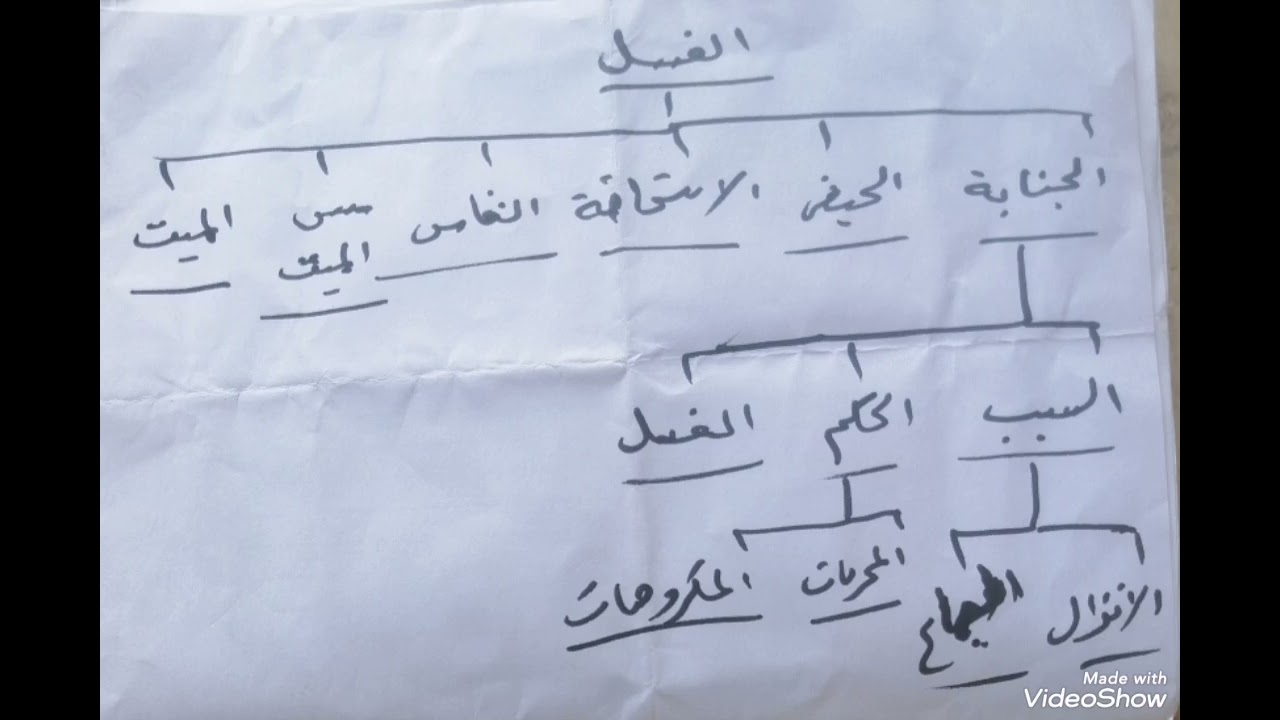 الغسل
الجنابة الحيض الاستحاضة النفاس مس الميت الميت
السبب الحكم الغسل
الانزال الجماع المحرمات المكروهات
Made with
VideoShow